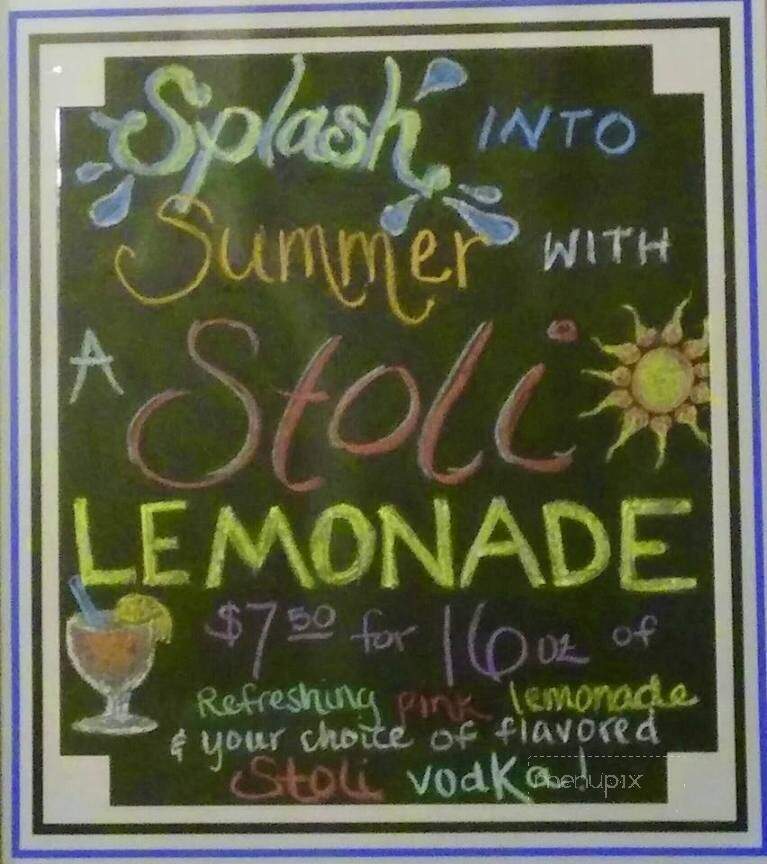 Splash INTO
Summer WITH
A Stoli
LEMONADE
$7.50 for 16 oz of
Refreshing pink lemonade
& your choice of flavored
Stoli vodka!
menupix